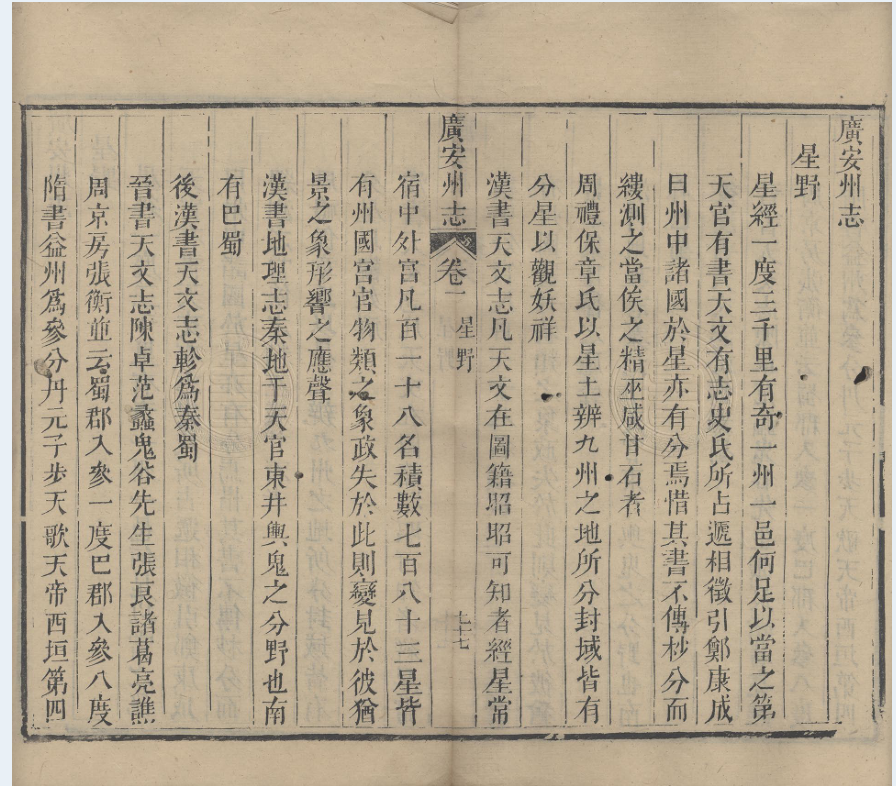 廣安州志
星野
星經一度三千里有奇一州一邑何足以當之第
天官有書天文有志史氏所占遞相徵引鄭康成
曰州中諸國於星亦有分焉惜其書不傳杪分而
縷測之當俟之精巫咸甘石者
周禮保章氏以星土辨九州之地所分封域皆有
分星以觀妖祥
漢書天文志凡天文在圖籍昭昭可知者經星常
廣安州志
卷一
星野
七十七
宿中外官凡百一十八名積數七百八十三星皆
有州國宫官物類之象政失於此則變見於彼猶
景之象形響之應聲
漢書地理志秦地于天官東井輿鬼之分野也南
有巴蜀
後漢書天文志軫爲秦蜀
晉書天文志陳卓范蠡鬼谷先生張良諸葛亮譙
周京房張衡並云蜀郡入參一度巴郡入參八度
隋書益州爲參分丹元子步天歌天帝西垣第四